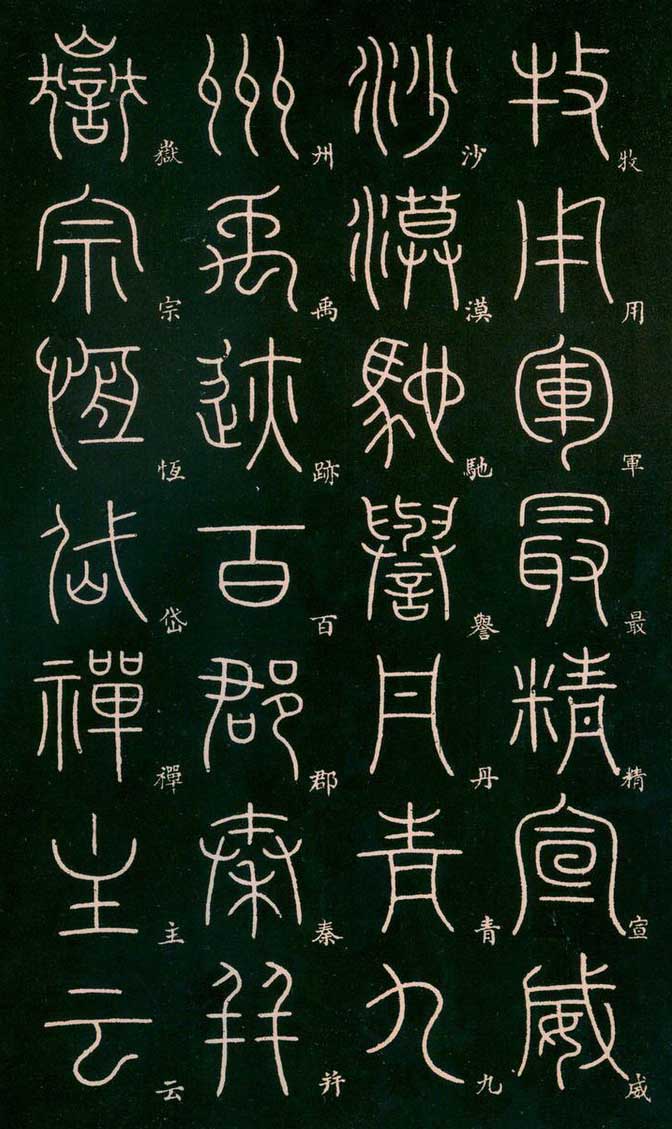 牧用軍最精宣威
沙漠馳譽丹青九
州禹跡百郡秦并
嶽宗恆岱禪主云